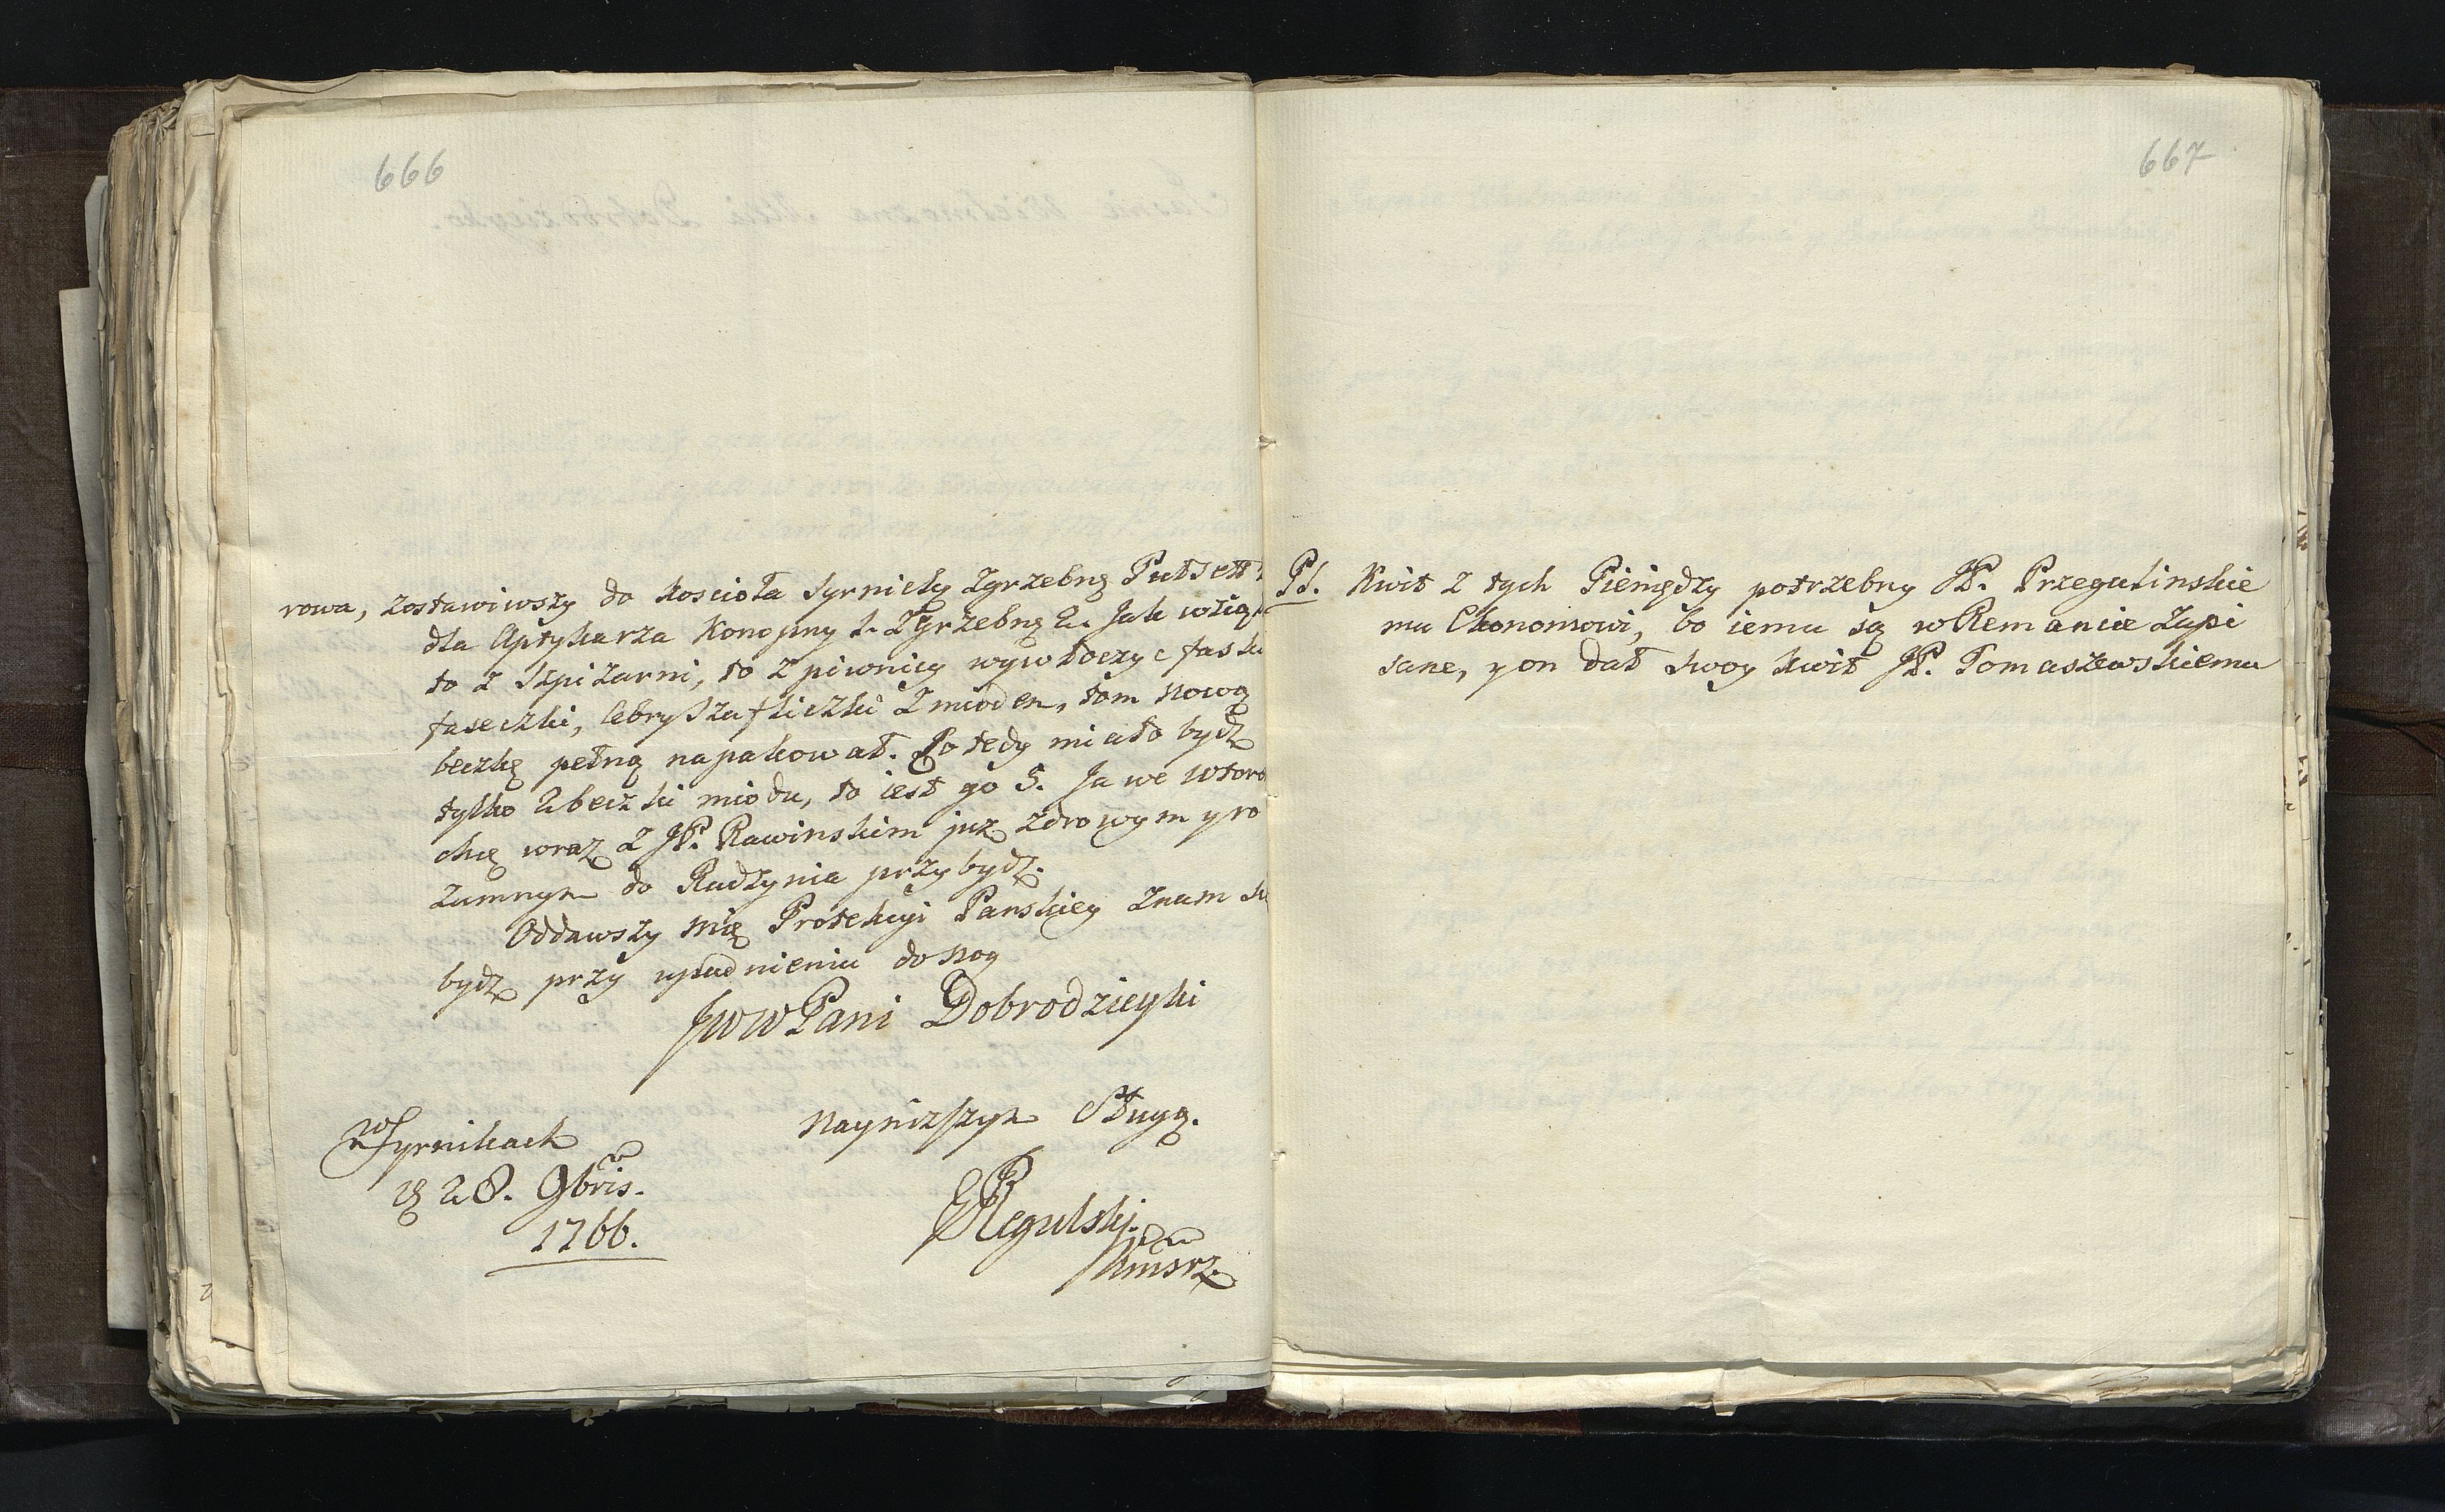 666
rowa, zostawiwszy do Koscioła Syrnicky Zgrzebną Putsett
dla Aptykarza Konopny 1. Zgrzebną 2. Jak wziął
to z Szpizarni, to z piwnicy wywłoczyc fask
faseczki, Cebry Szafliczki z miodem, tom nową
beczkę pełną napakował. Po tedy miało bydz
tylko 2 beczki miodu, to iest go 5. Ja we Wtor
chcę wraz z JP. Rawinskim juz zdrowym y ro
zumnym do Radzynia przybydz.
Oddawszy mię Protekcyi Panskiey znam
bydz przy upadnieniu do nog
JWW Pani Dobrodzieyki
Nayniższym Sługą.
w Syrnikach
d 28. 9bris.
1766.
Regulski
Kmsrz
667
PS. Kwit z tych Pieniędzy potrzebny JP. Przegalinskie
mu Ekonomowi, bo iemu są w Remanie Zapi
sane, y on dał swoy kwit JP. Tomaszewskiemu